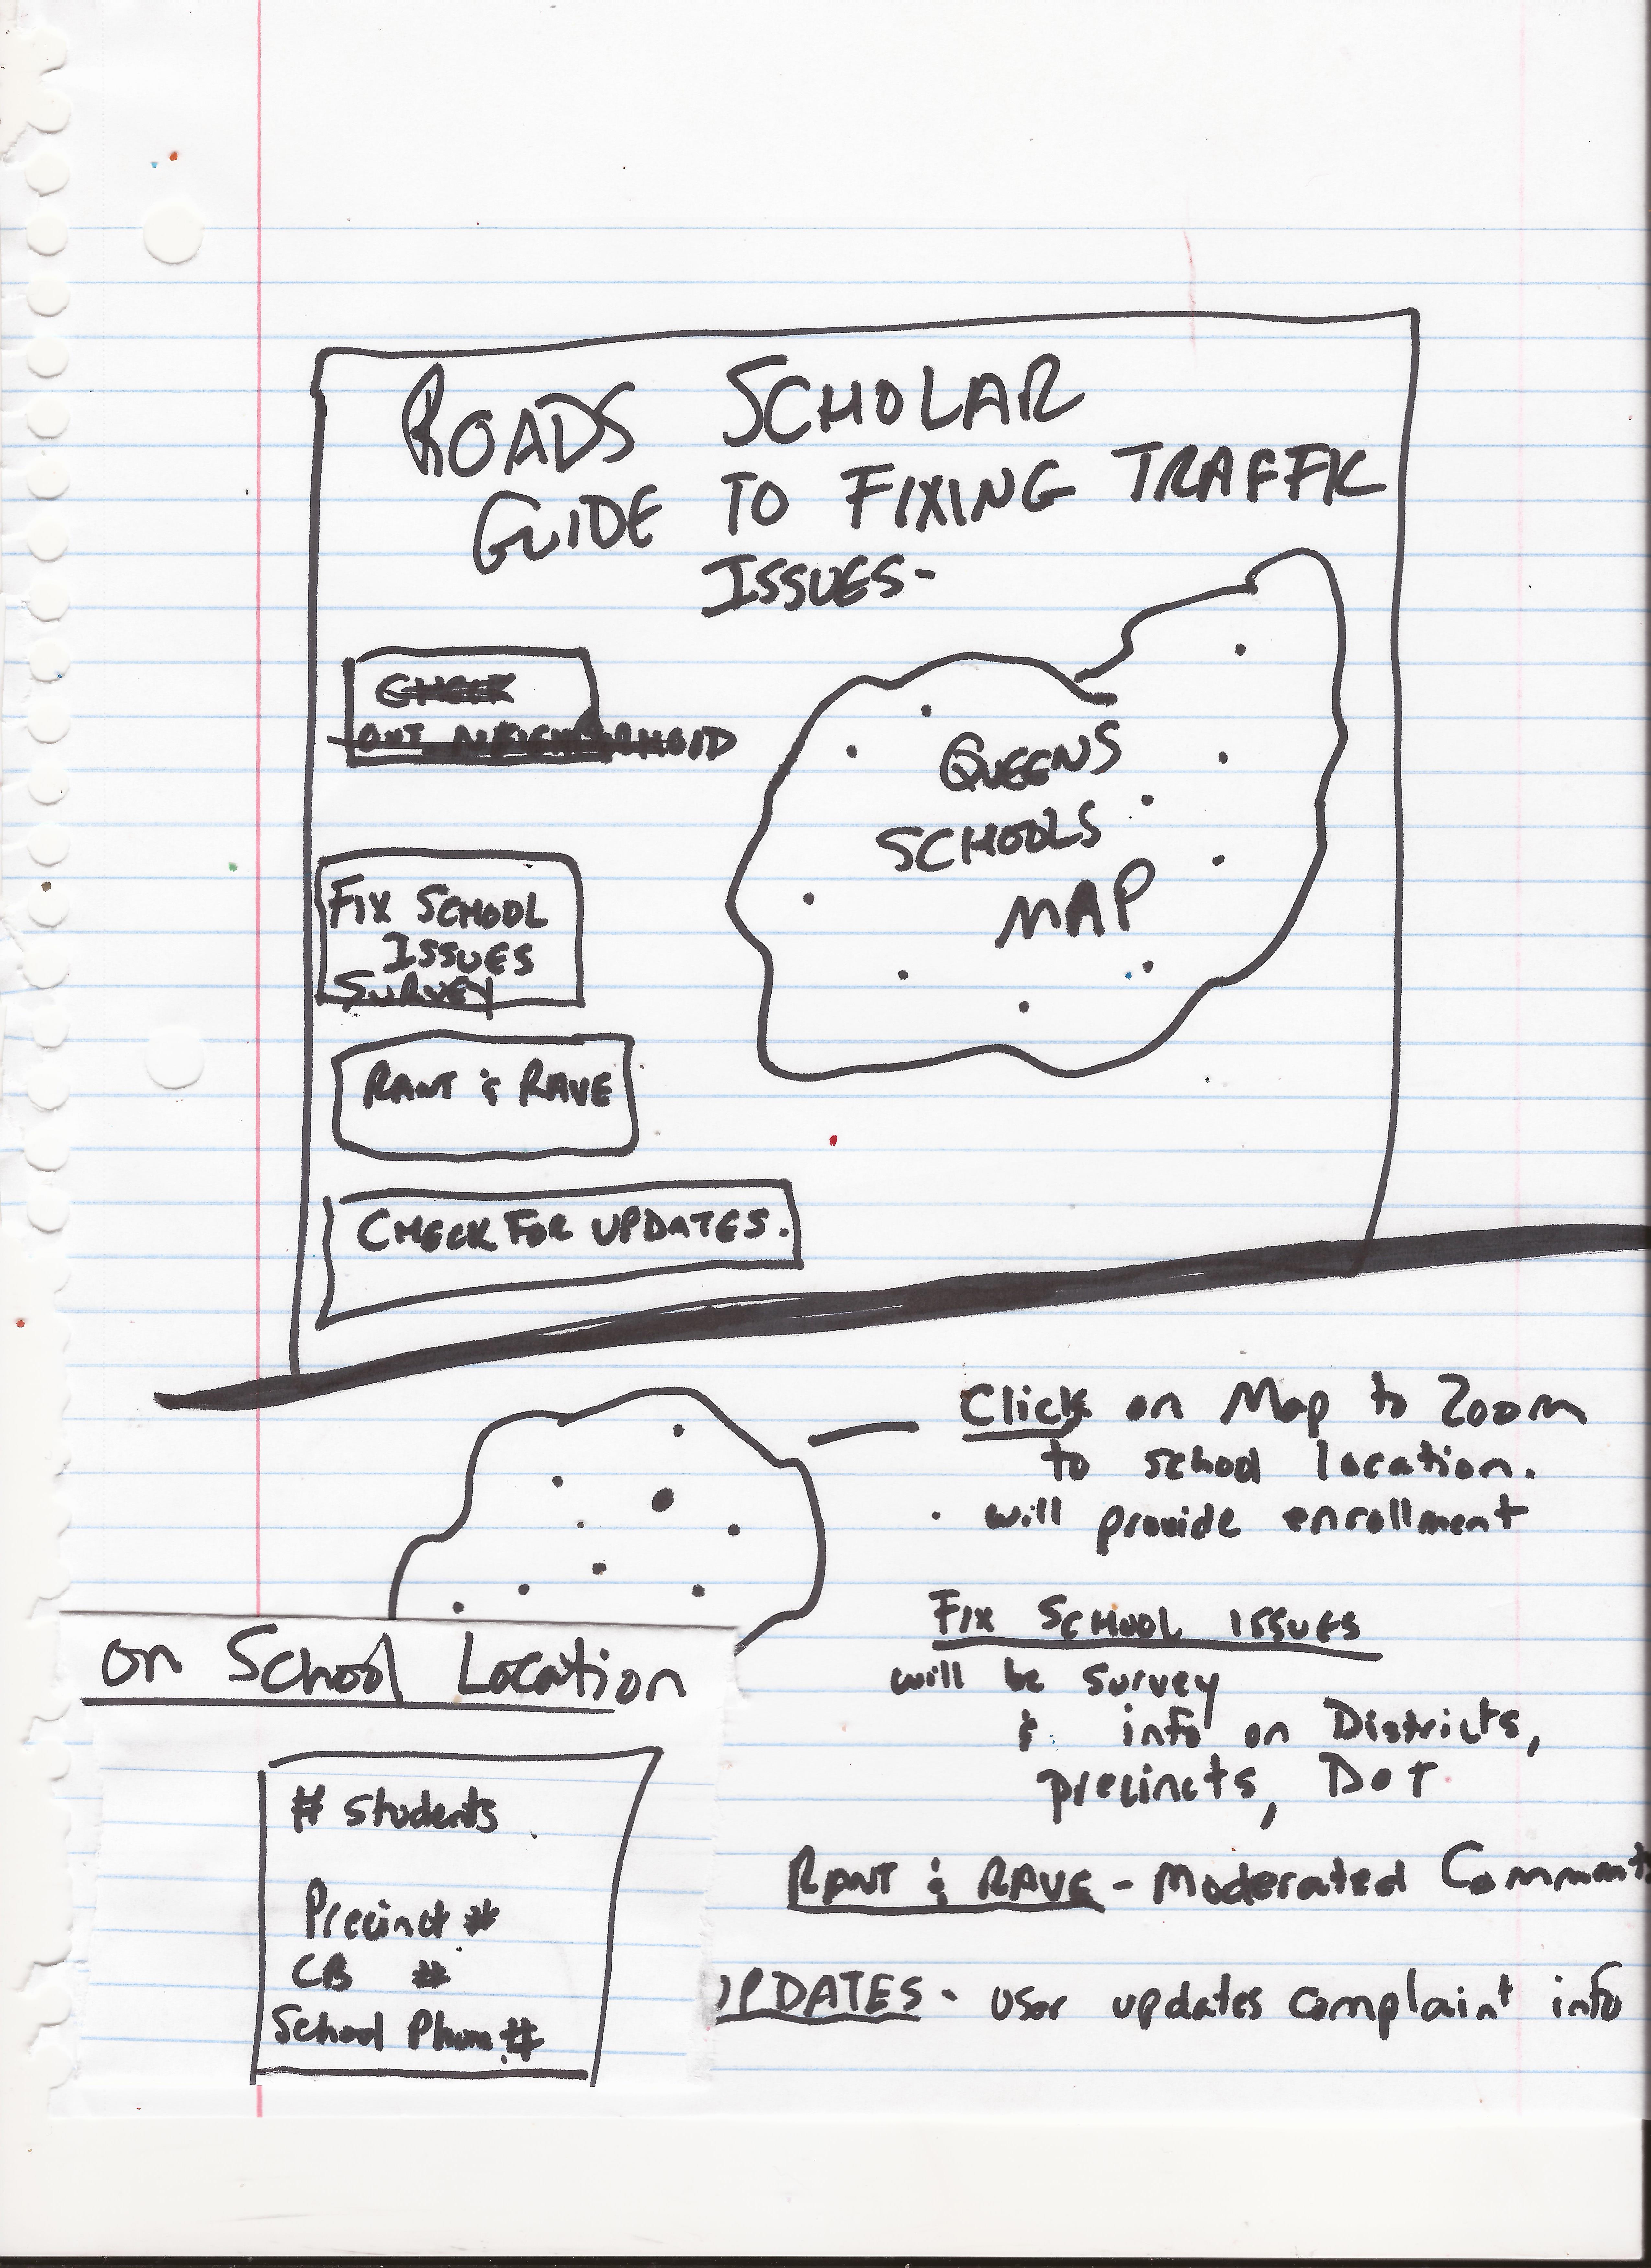 ROADS SCHOLAR
GUIDE TO FIXING TRAFFIC
ISSUES-
CHECK
OUT NEIGHBORHOOD
QUEENS
SCHOOLS
MAP
FIX SCHOOL
ISSUES
SURVEY
RANT & RAVE
CHECK FOR UPDATES.
Click on Map to Zoom
to school location.
. will provide enrollment
FIX SCHOOL ISSUES
will be survey
& info on Districts,
precincts, DOT
on School Location
# students
Precinct #
CB #
School Phone #
RANT & RAVE - Moderated Comments
UPDATES - user updates complaint info